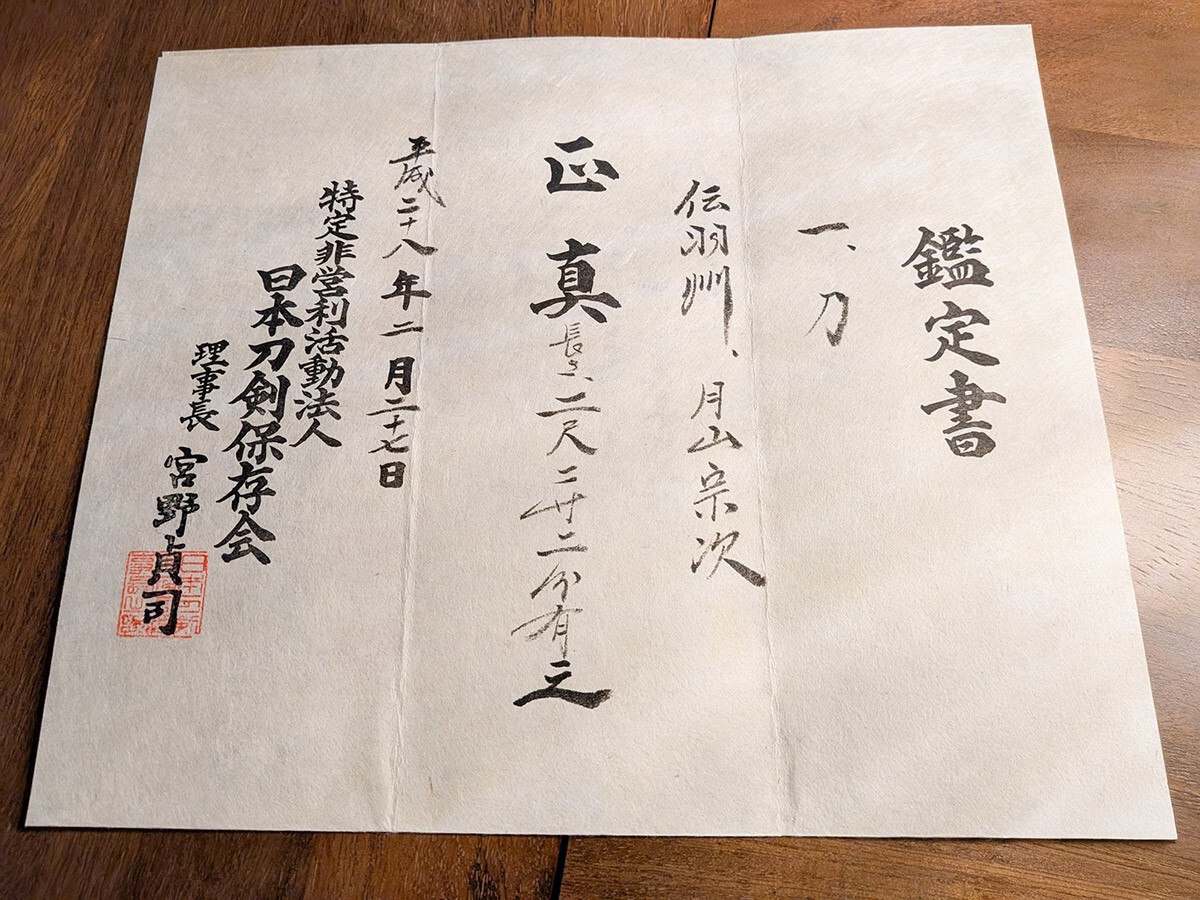 鑑定書
一、刀
伝羽州、月山宗次
正真
長さ、二尺二寸二分有之
平成二十八年二月二十七日
特定非営利活動法人
日本刀剣保存会
理事長 宮野貞司